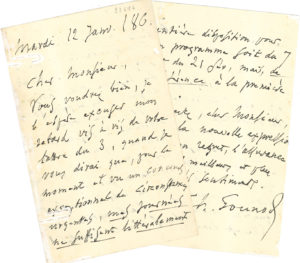 Mardi 12 Janv. 186.
Cher Monsieur,
Vous voudrez bien, je
l'espère excuser mon
retard vis à vis de votre
lettre du 3, quand je
vous dirai que, pour le
moment et vu un
exceptionnel de circonstances
urgentes, mes journées
me suffisent littéralement
entière disposition pour
programme soit du 7
du 21 fév., mais, de
préférence à la première
cher Monsieur,
la nouvelle expression
regret, l'assurance
meilleurs et
sentiments.
Ch. Gounod